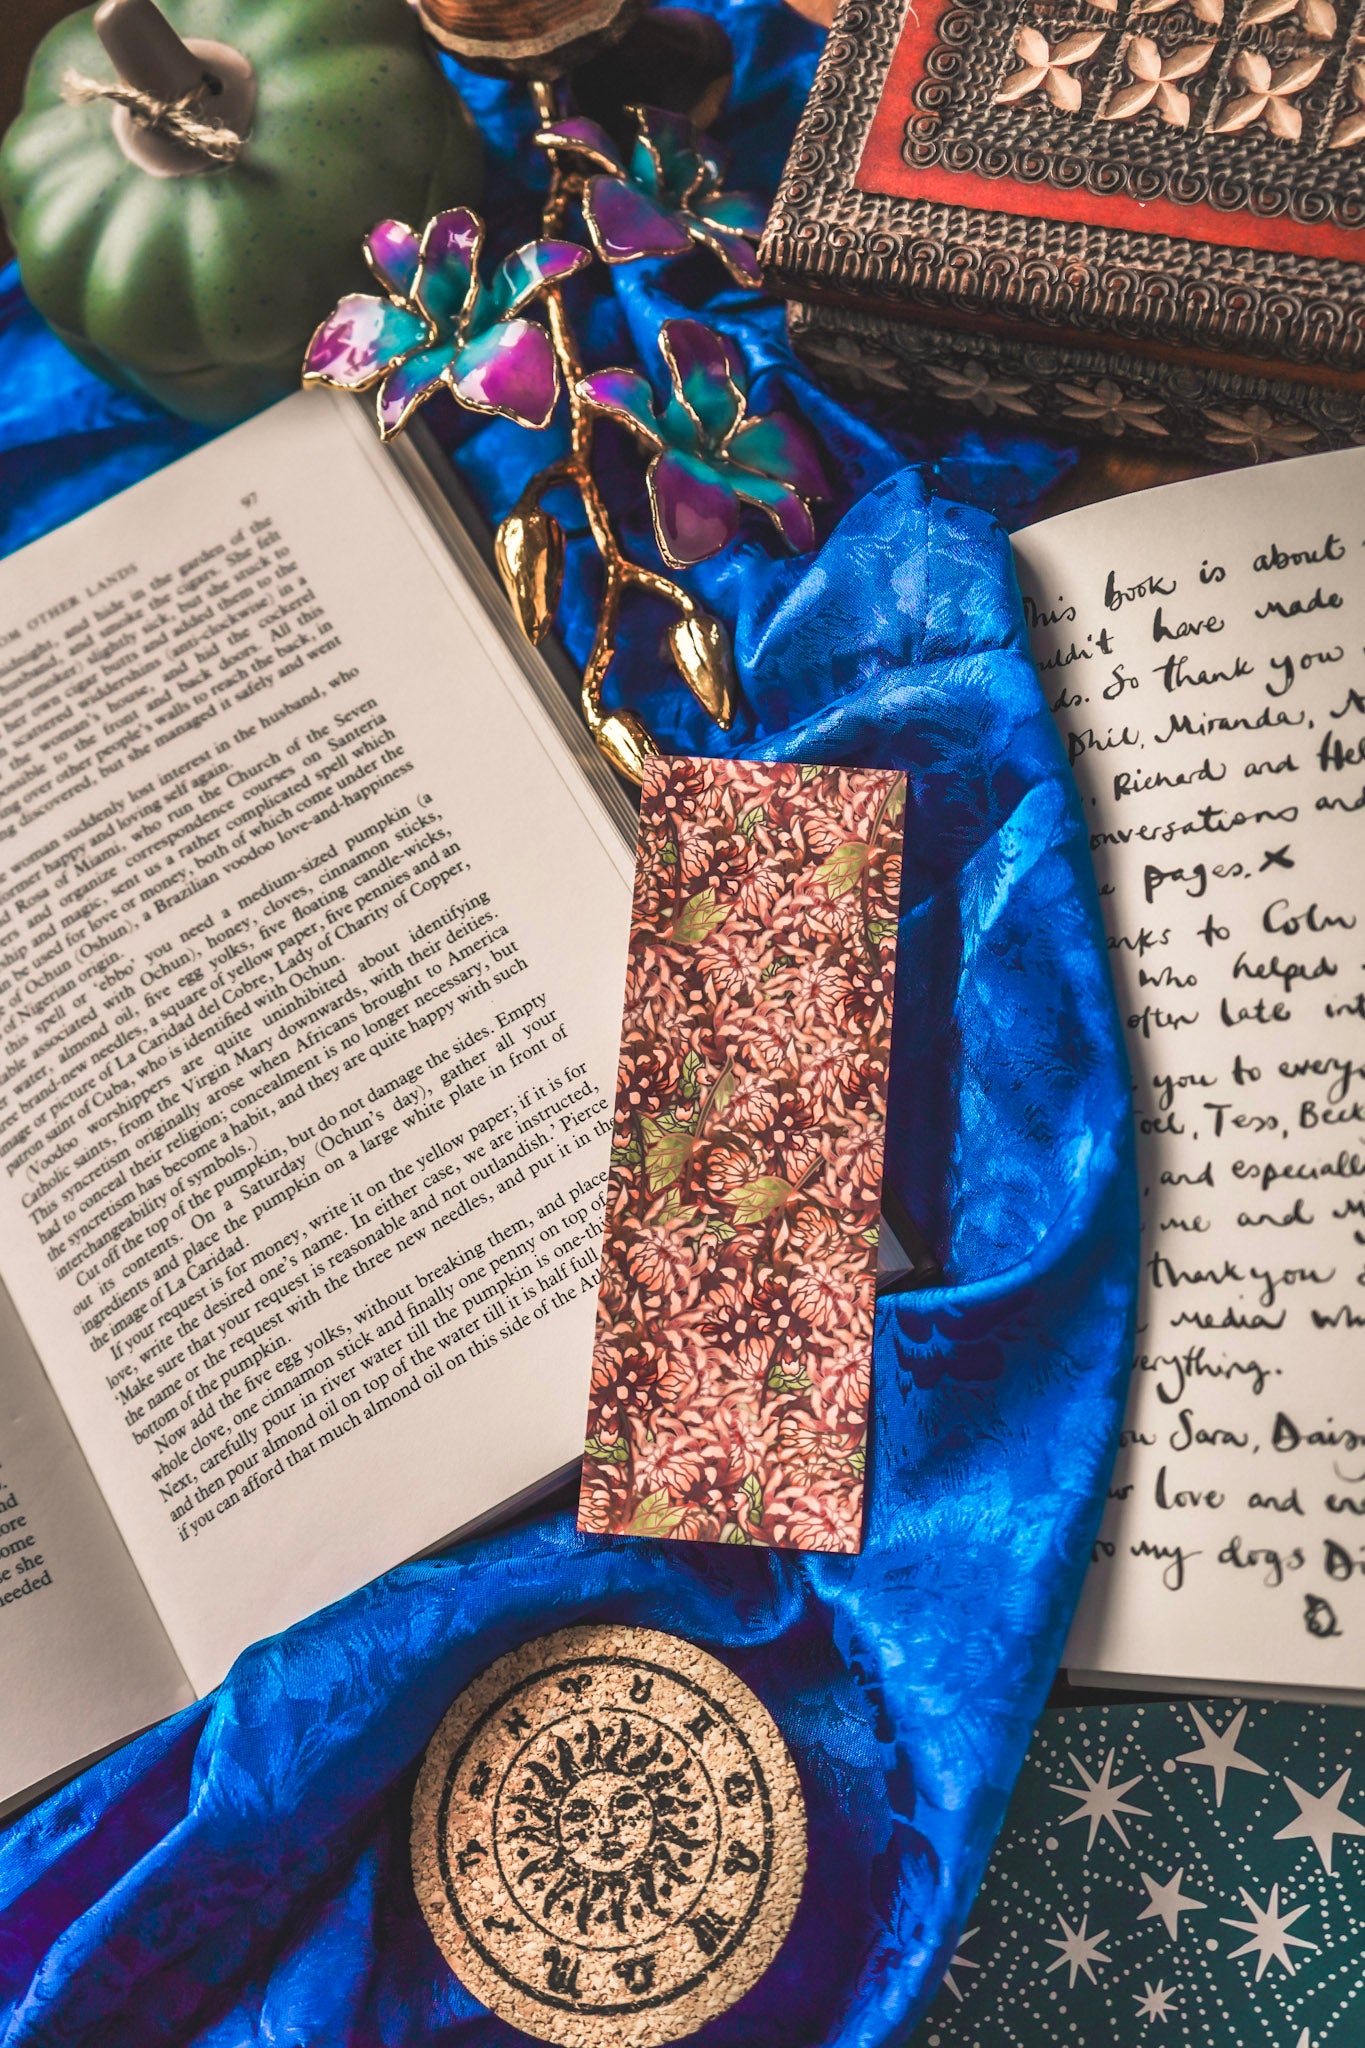 97
OM OTHER LANDS
midnight, and hide in the garden of the
husband, and smoke the cigars. She felt
slightly sick, but she stuck to
her own cigar butts and added them to the
scattered widdershins (anti-clockwise) in a
the woman's house, and hid the cockerel
possible to the front and back doors. All this
ing over other people's walls to reach the back, in
ng discovered, but she managed it safely and went
woman suddenly lost interest in the husband, who
former happy and loving self again.
Rosa of Miami, who run the Church of the Seven
ers and organize correspondence courses on Santeria
ship and magic, sent us a rather complicated spell which
be used for love or money, both of which come under the
of Ochun (Oshun), a Brazilian voodoo love-and-happiness
of Nigerian origin.
this spell or 'ebbo' you need a medium-sized pumpkin (a
table associated with Ochun), honey, cloves, cinnamon sticks,
water, almond oil, five egg yolks, five floating candle-wicks,
brand-new needles, a square of yellow paper, five pennies and an
image or picture of La Caridad del Cobre, Lady of Charity of Copper,
patron saint of Cuba, who is identified with Ochun.
(Voodoo worshippers are quite uninhibited about identifying
Catholic saints, from the Virgin Mary downwards, with their deities.
This syncretism originally arose when Africans brought to America
had to conceal their religion; concealment is no longer necessary, but
the syncretism has become a habit, and they are quite happy with such
interchangeability of symbols.)
Cut off the top of the pumpkin, but do not damage the sides. Empty
out its contents. On a Saturday (Ochun's day), gather all your
ingredients and place the pumpkin on a large white plate in front of
the image of La Caridad.
If your request is for money, write it on the yellow paper; if it is for
love, write the desired one's name. In either case, we are instructed,
'Make sure that your request is reasonable and not outlandish.' Pierce
the name or the request with the three new needles, and put it in the
bottom of the pumpkin.
Now add the five egg yolks, without breaking them, and place
whole clove, one cinnamon stick and finally one penny on top of
Next, carefully pour in river water till the pumpkin is one-thi
and then pour almond oil on top of the water till it is half full
if you can afford that much almond oil on this side of the Atl
nd
ore
some
se she
needed
This book is about
uldn't have made
ds. So thank you
Phil, Miranda, N
, Richard and Hel
onversations and
e pages. x
anks to Colm
who helped
often late int
you to every
Joel, Tess, Beck
, and especiall
me and my
thank you
media wh
erything.
ou Sara, Daisy
love and en
o my dogs D